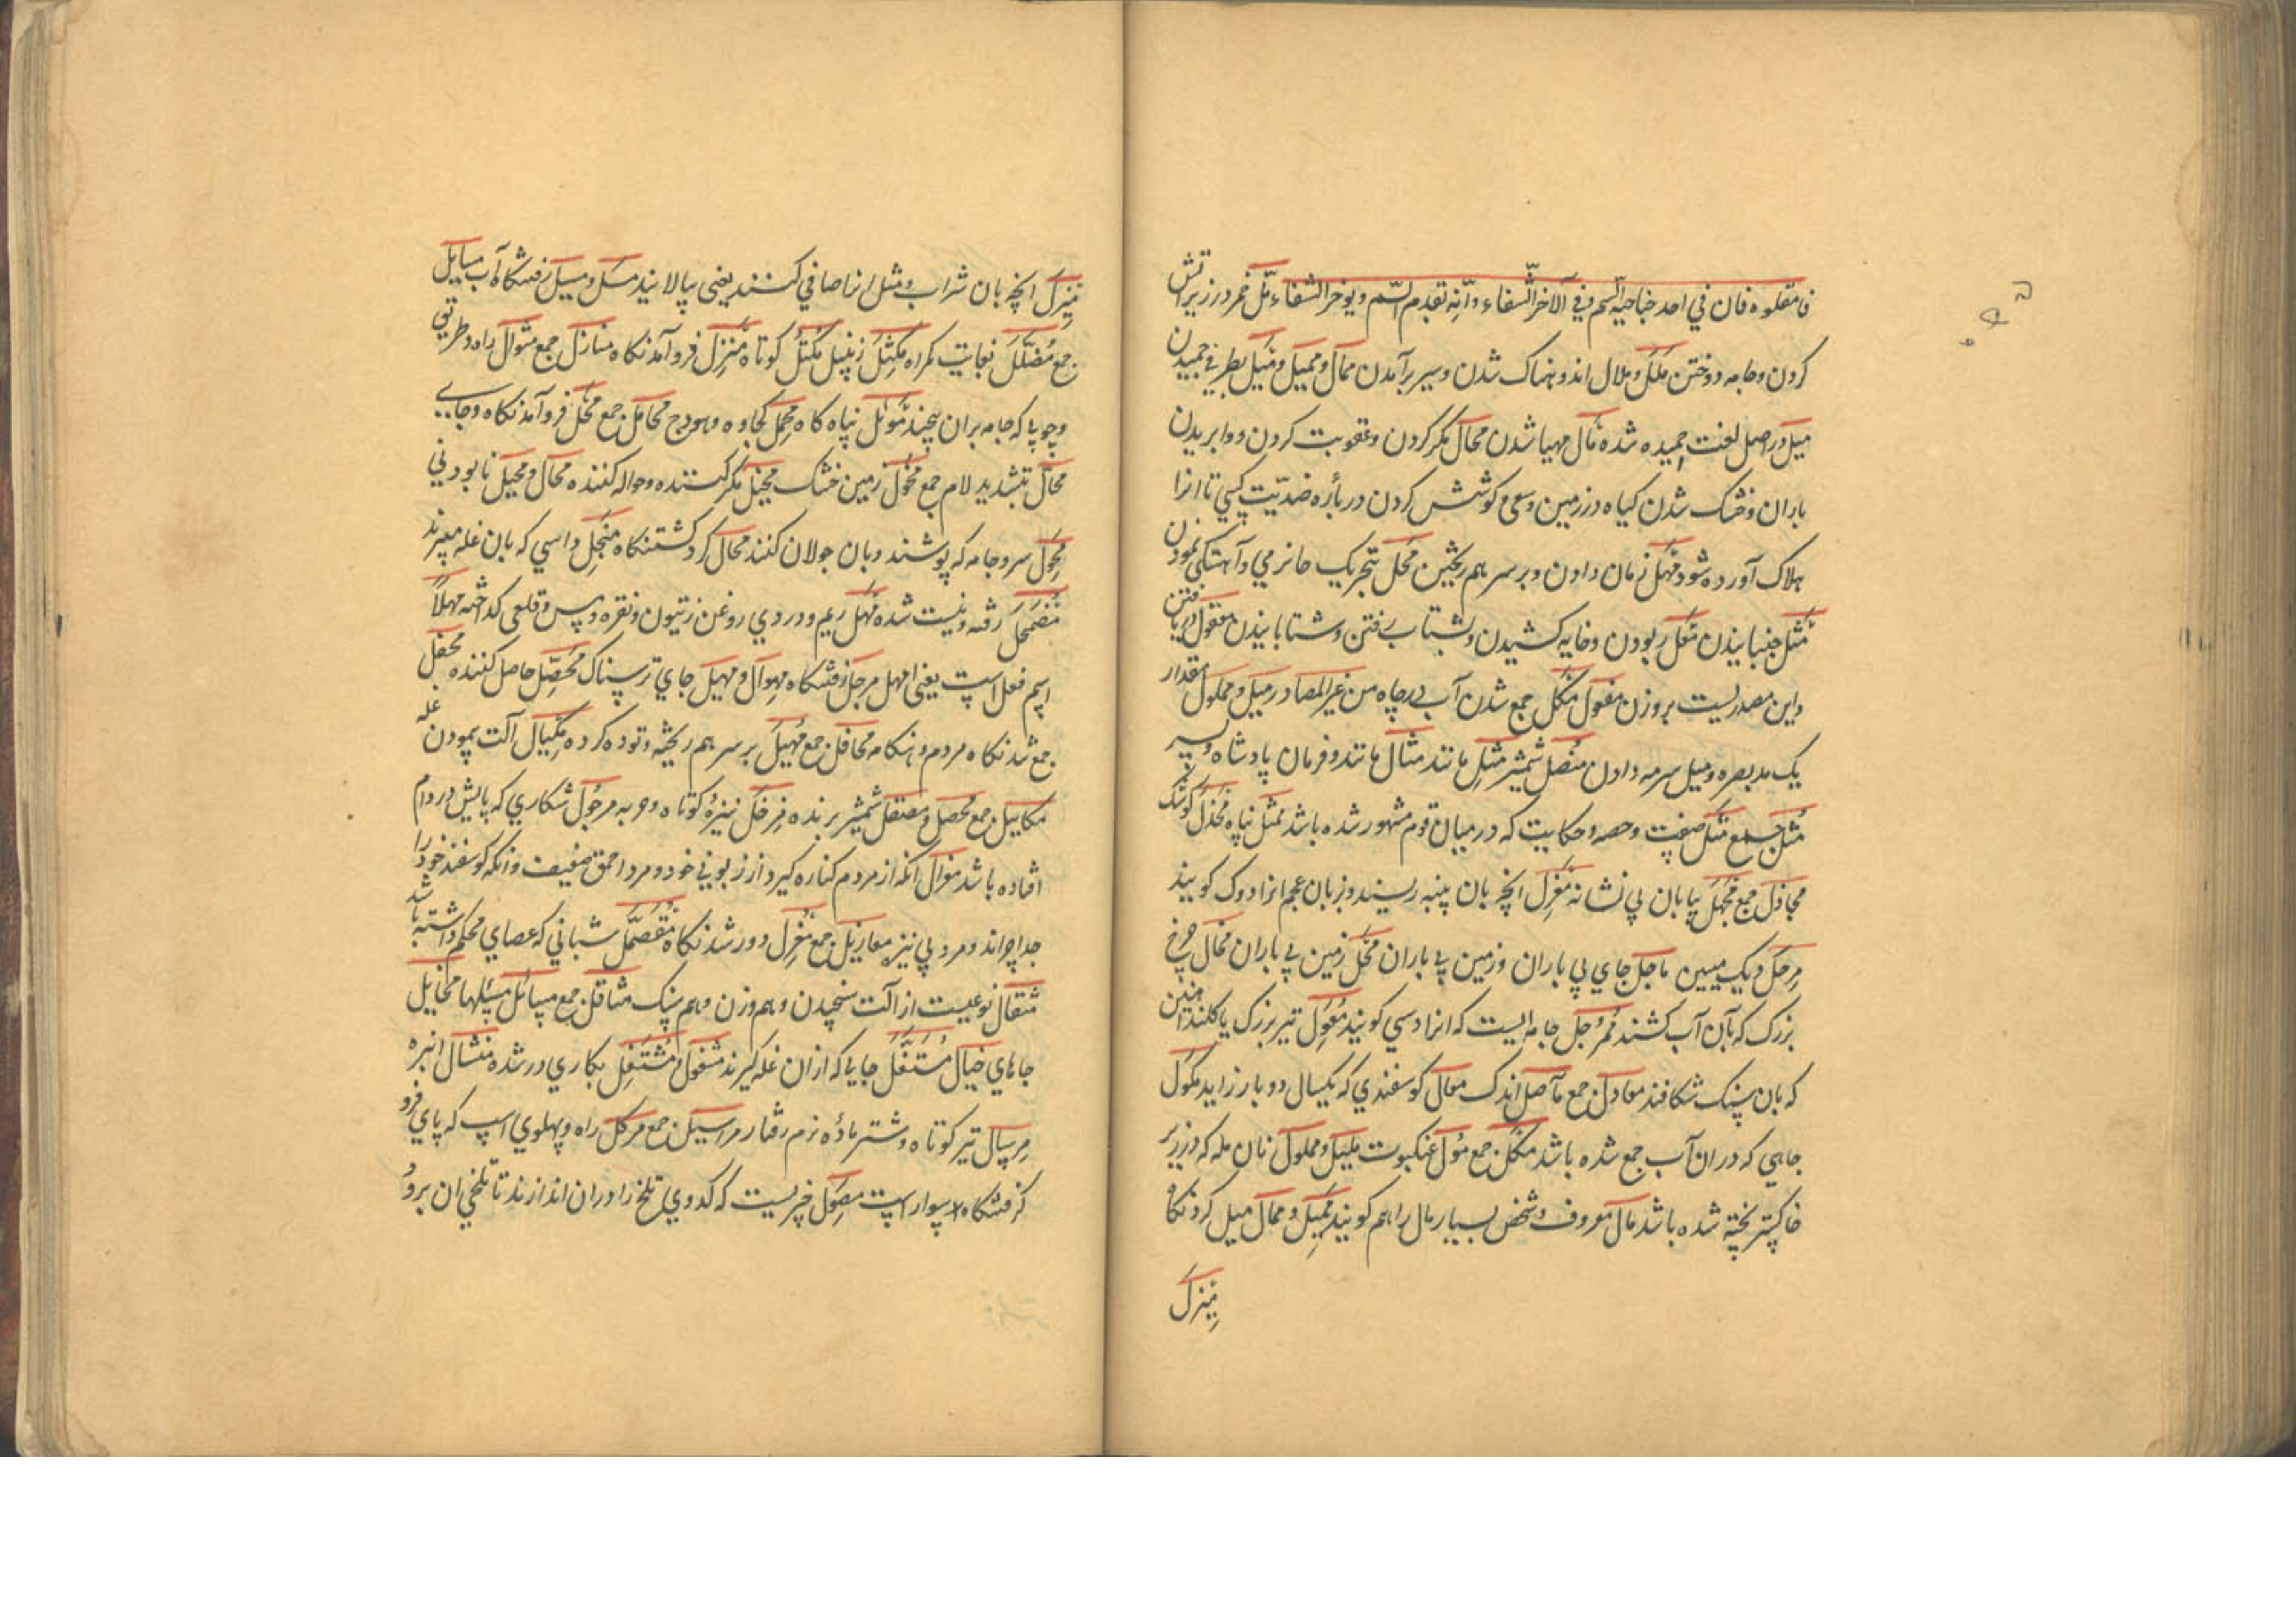 فامقلوه فان في احد جناحيه السم وفي الآخر الشفاء وانه تقدم السم ويوخر الشفاء مَلّ خمر در زیر آتش
کردن و جامه دوختن مَلَل و ملال اندوهناک شدن و سیر برآمدن ممال و ممیل و مَیل بطرفی چمیدن
میل در اصل لغت چمیده شده مآل مهیا شدن محال مکر کردن و عقوبت کردن و وابریدن
باران و خشک شدن کیاه در زمین و سعی و کوشش کردن در باره ضدیت کسی تا او را
هلاک آورده شود مهل زمان دادن و بر سر هم ریختن مَهَل بتحریک ها نرمی و آهستکی نمودن
مثل جنبانیدن معل ربودن و خایه کشیدن و بشتاب رفتن و شتابانیدن معقول دریافتن
و این مصدریست بر وزن مفعول مکل جمع شدن آب در چاه من غیر المصادر میل و مملول مقدار
یک مد بصره و میل سرمه دادن منصل شمشیر مثل مانند مثال مانند و فرمان پادشاه و بستر
مثل جمع مَثَل صفت و حصه و حکایت که در میان قوم مشهور شده باشد ممثل پناه مجدل کوشک
مجادل جمع مجهل بیابان بی نشانه مغزل آنچه بان پنبه ریسند و زبان عجم انرا دوک کویند
مرجل دیک مسین ماحل جای بی باران و زمین بی باران محل زمین بی باران محال چرخ
بزرک که بآن آب کشند ممرجل جامه ایست که انرا دسی کویند معول تبر بزرک یا کلند آهنین
که بان سنک شکافند معاول جمع مآصل اندک ممال کوسفندی که یکسال دو بار زاید مکول
چاهی که در ان آب جمع شده باشد مکل جمع مول عنکبوت ملیل و مملول نان مله که در زیر
خاکستر پخته شده باشد مال معروف و شخص بسیار مال را هم کویند ممیل و ممال میل کردنکاه
مبزل
مبزل آنچه بان شراب و مثل انرا صافی کنند یعنی بپالایند مسل و مسیل رفتنکاه آب مسایل
جمع مضلل نهایت کمراه مکتل زنبیل مکتل کوتاه منزل فرو آمدنکاه منازل جمع منوال راه و طریق
و چوبی که جامه بر ان پیچند موئل پناه کاه محمل کجاوه و هودج محامل جمع محل فرو آمدنکاه و جای
محال بتشدید لام جمع محول زمین خشک محیل مکر کننده و حواله کننده محال و محیل نابودنی
مجول سر و جامه که پوشند و بان جولان کنند مجال کرد کشتنکاه منجل داسی که بان غله میبرند
مضمحل رفته و نیست شده مهل ریم و دردی روغن زیتون و نقره و مس و قلعی کداخته مهلا
اسم فعل است یعنی امهل مرحل رفتنکاه مهوال و مهیل جای ترسناک محصل حاصل کننده محفل
جمع شدنکاه مردم و هنکامه محافل جمع مهیل بر سر هم ریخته و توده کرده مکیال آلت پیمودن غله
مکاییل جمع محصل و مصقل شمشیر برنده مزجل نیزه کوتاه و حربه مرجول شکاری که پایش در دام
افتاده باشد معزال آنکه از مردم کناره کیرد از زبونی خود و مرد احمق ضعیف و آنکه کوسفند خود را
جدا چراند و مرد بی نیزه معازیل جمع معزل دور شدنکاه مقصمل شبانی که عصای محکم داشته باشد
مثقال نوعیست از آلت سنجیدن و هم وزن و هم سنک مثاقل جمع مسائل مسئلها مخایل
جاهای خیال مستغل جایی که از ان غله کیرند مشغول و مشتغل بکاری در شده منشال انبره
مرسال تیر کوتاه و شتر ماده نرم رفتار مراسیل جمع مرکل راه و پهلوی اسپ که پای فرو
کرفتنکاه سوار است مصول چیزیست که کدوی تلخ را در ان اندازند تا تلخی ان برود